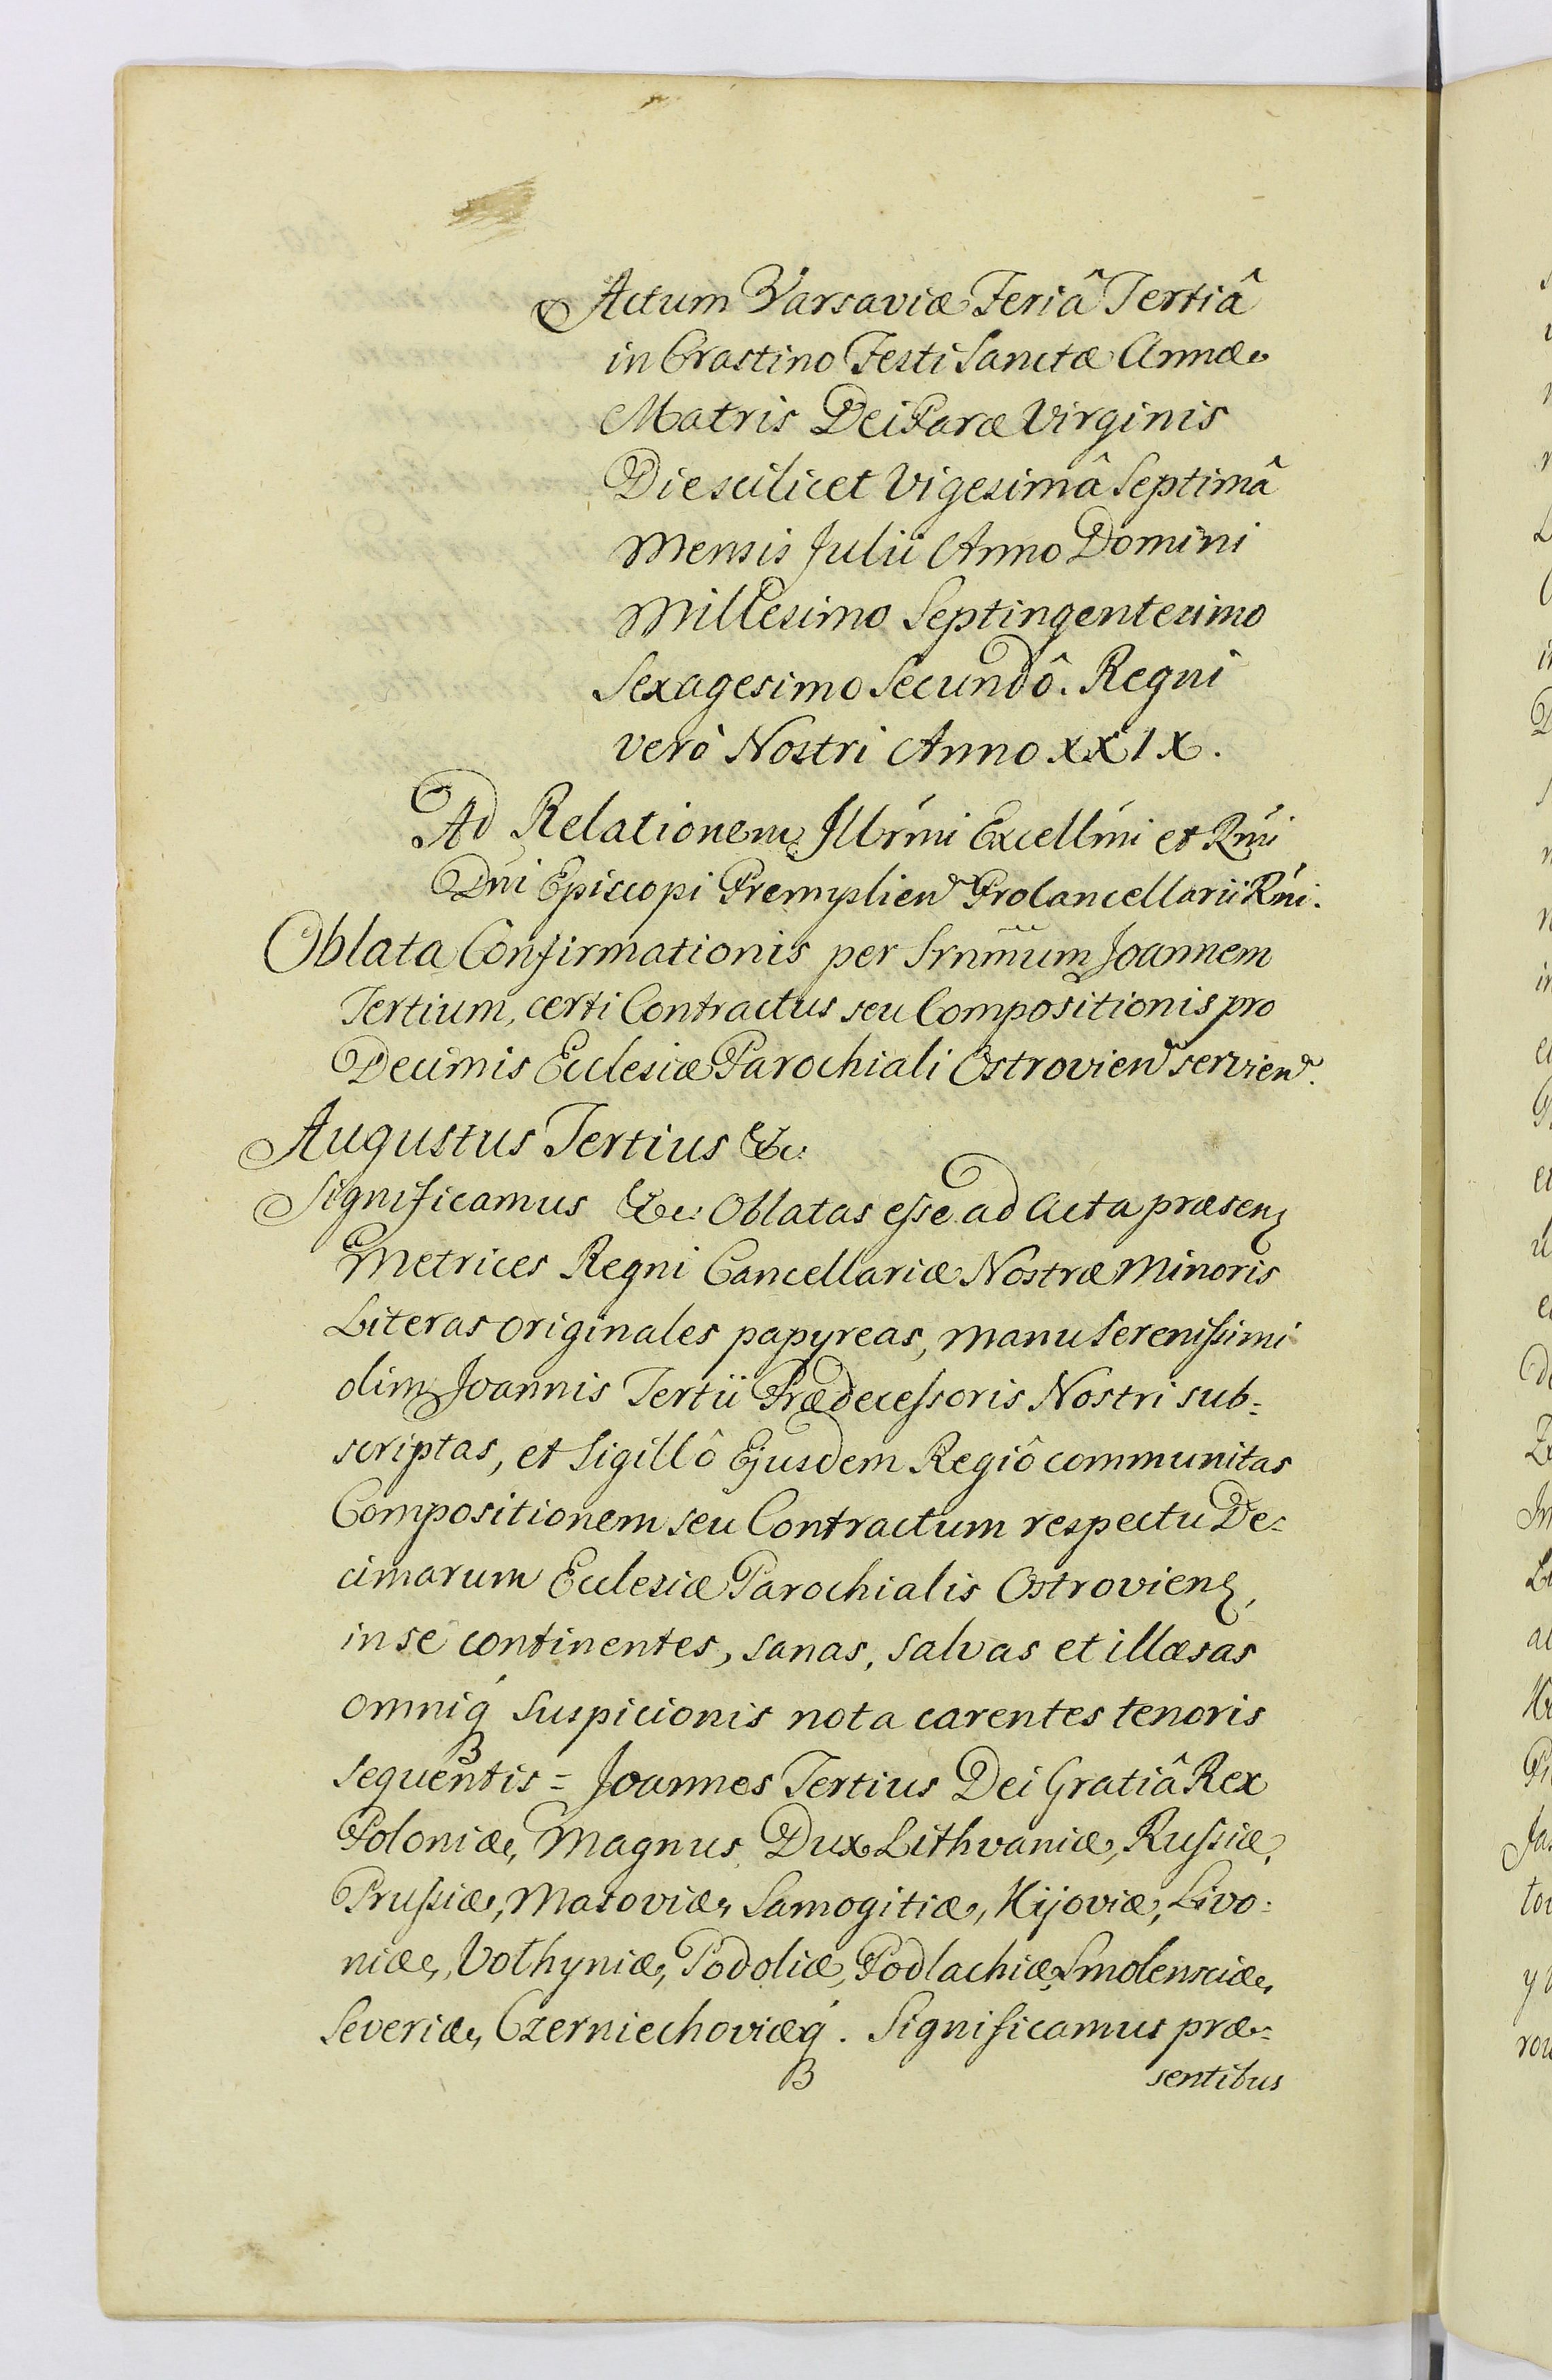 Actum Varsaviæ Feriâ Tertiâ
in Crastino Festi Sanctæ Annæ
Matris DeiParæ Virginis
Die scilicet Vigesimâ Septimâ
Mensis Julii Anno Domini
Millesimo Septingentesimo
Sexagesimo Secundô. Regni
verò Nostri Anno XXIX.
Ad Relationem Illrm̃i Excellm̃i et Rm̃i
Dn̄i Episcopi Premyslien̄ ProCancellarii Rn̄i.
Oblata Confirmationis per Srñmum Joannem
Tertium, certi Contractus seu Compositionis pro
Decimis Ecclesiæ Parochiali Ostrovien̄ servien̄.
Augustus Tertius &c:
Significamus &c: Oblatas esse ad Acta præsenꝫ
Metrices Regni Cancellariæ Nostræ Minoris
Literas originales papyreas, manu Serenissimi
olim Joannis Tertii Prædecessoris Nostri sub=
scriptas, et Sigillô Ejusdem Regiô communitas
Compositionem seu Contractum respectu De=
cimarum Ecclesiæ Parochialis Ostrovienꝫ,
in se continentes, sanas, salvas et illæsas
omniq́ꝫ suspicionis nota carentes tenoris
sequentis = Joannes Tertius Dei Gratiâ Rex
Poloniæ, Magnus Dux Lithvaniæ, Russiæ,
Prussiæ, Masoviæ, Samogitiæ, Kijoviæ, Livo=
niæ, Volhyniæ, Podoliæ, Podlachiæ, Smolensciæ,
Severiæ, Czerniechoviæq́ꝫ. Significamus præ=
sentibus